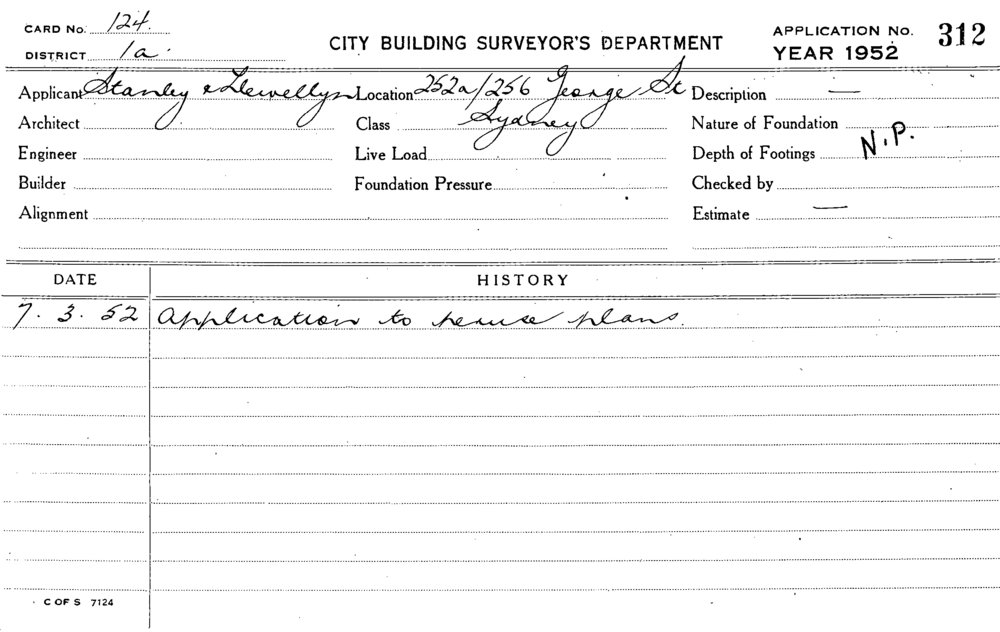 CARD No. 124.
DISTRICT 1a.
CITY BUILDING SURVEYOR'S DEPARTMENT
APPLICATION No. 312
YEAR 1952
Applicant Stanley & Llewellyn Location 252a/256 George St Description —
Architect Class Sydney Nature of Foundation
Engineer Live Load Depth of Footings N.P.
Builder Foundation Pressure Checked by
Alignment Estimate —
DATE HISTORY
7. 3. 52 Application to peruse plans.
C OF S 7124